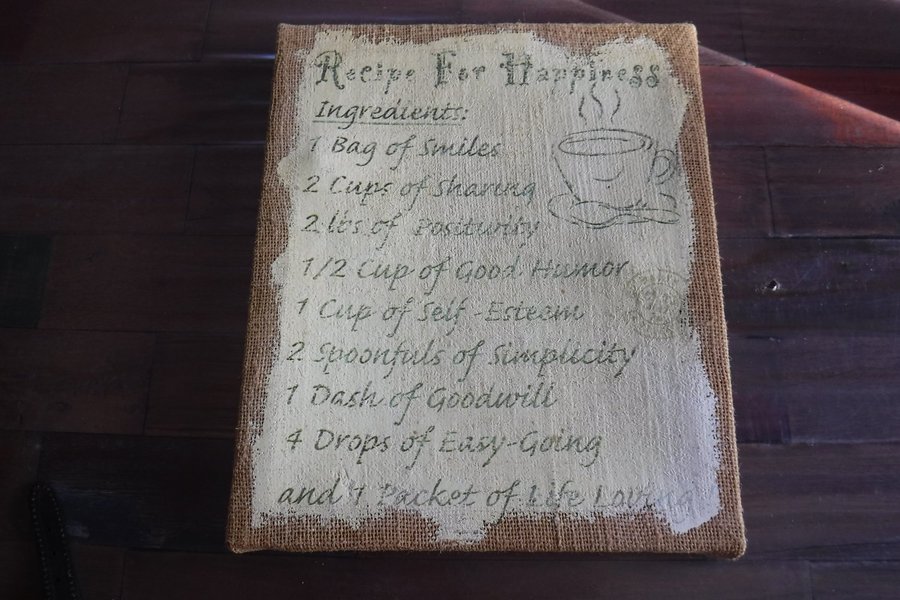 Recipe For Happiness
Ingredients:
1 Bag of Smiles
2 Cups of Sharing
2 lbs of Positivity
1/2 Cup of Good Humor
1 Cup of Self-Esteem
2 Spoonfuls of Simplicity
1 Dash of Goodwill
4 Drops of Easy-Going
and 1 Packet of Life Loving